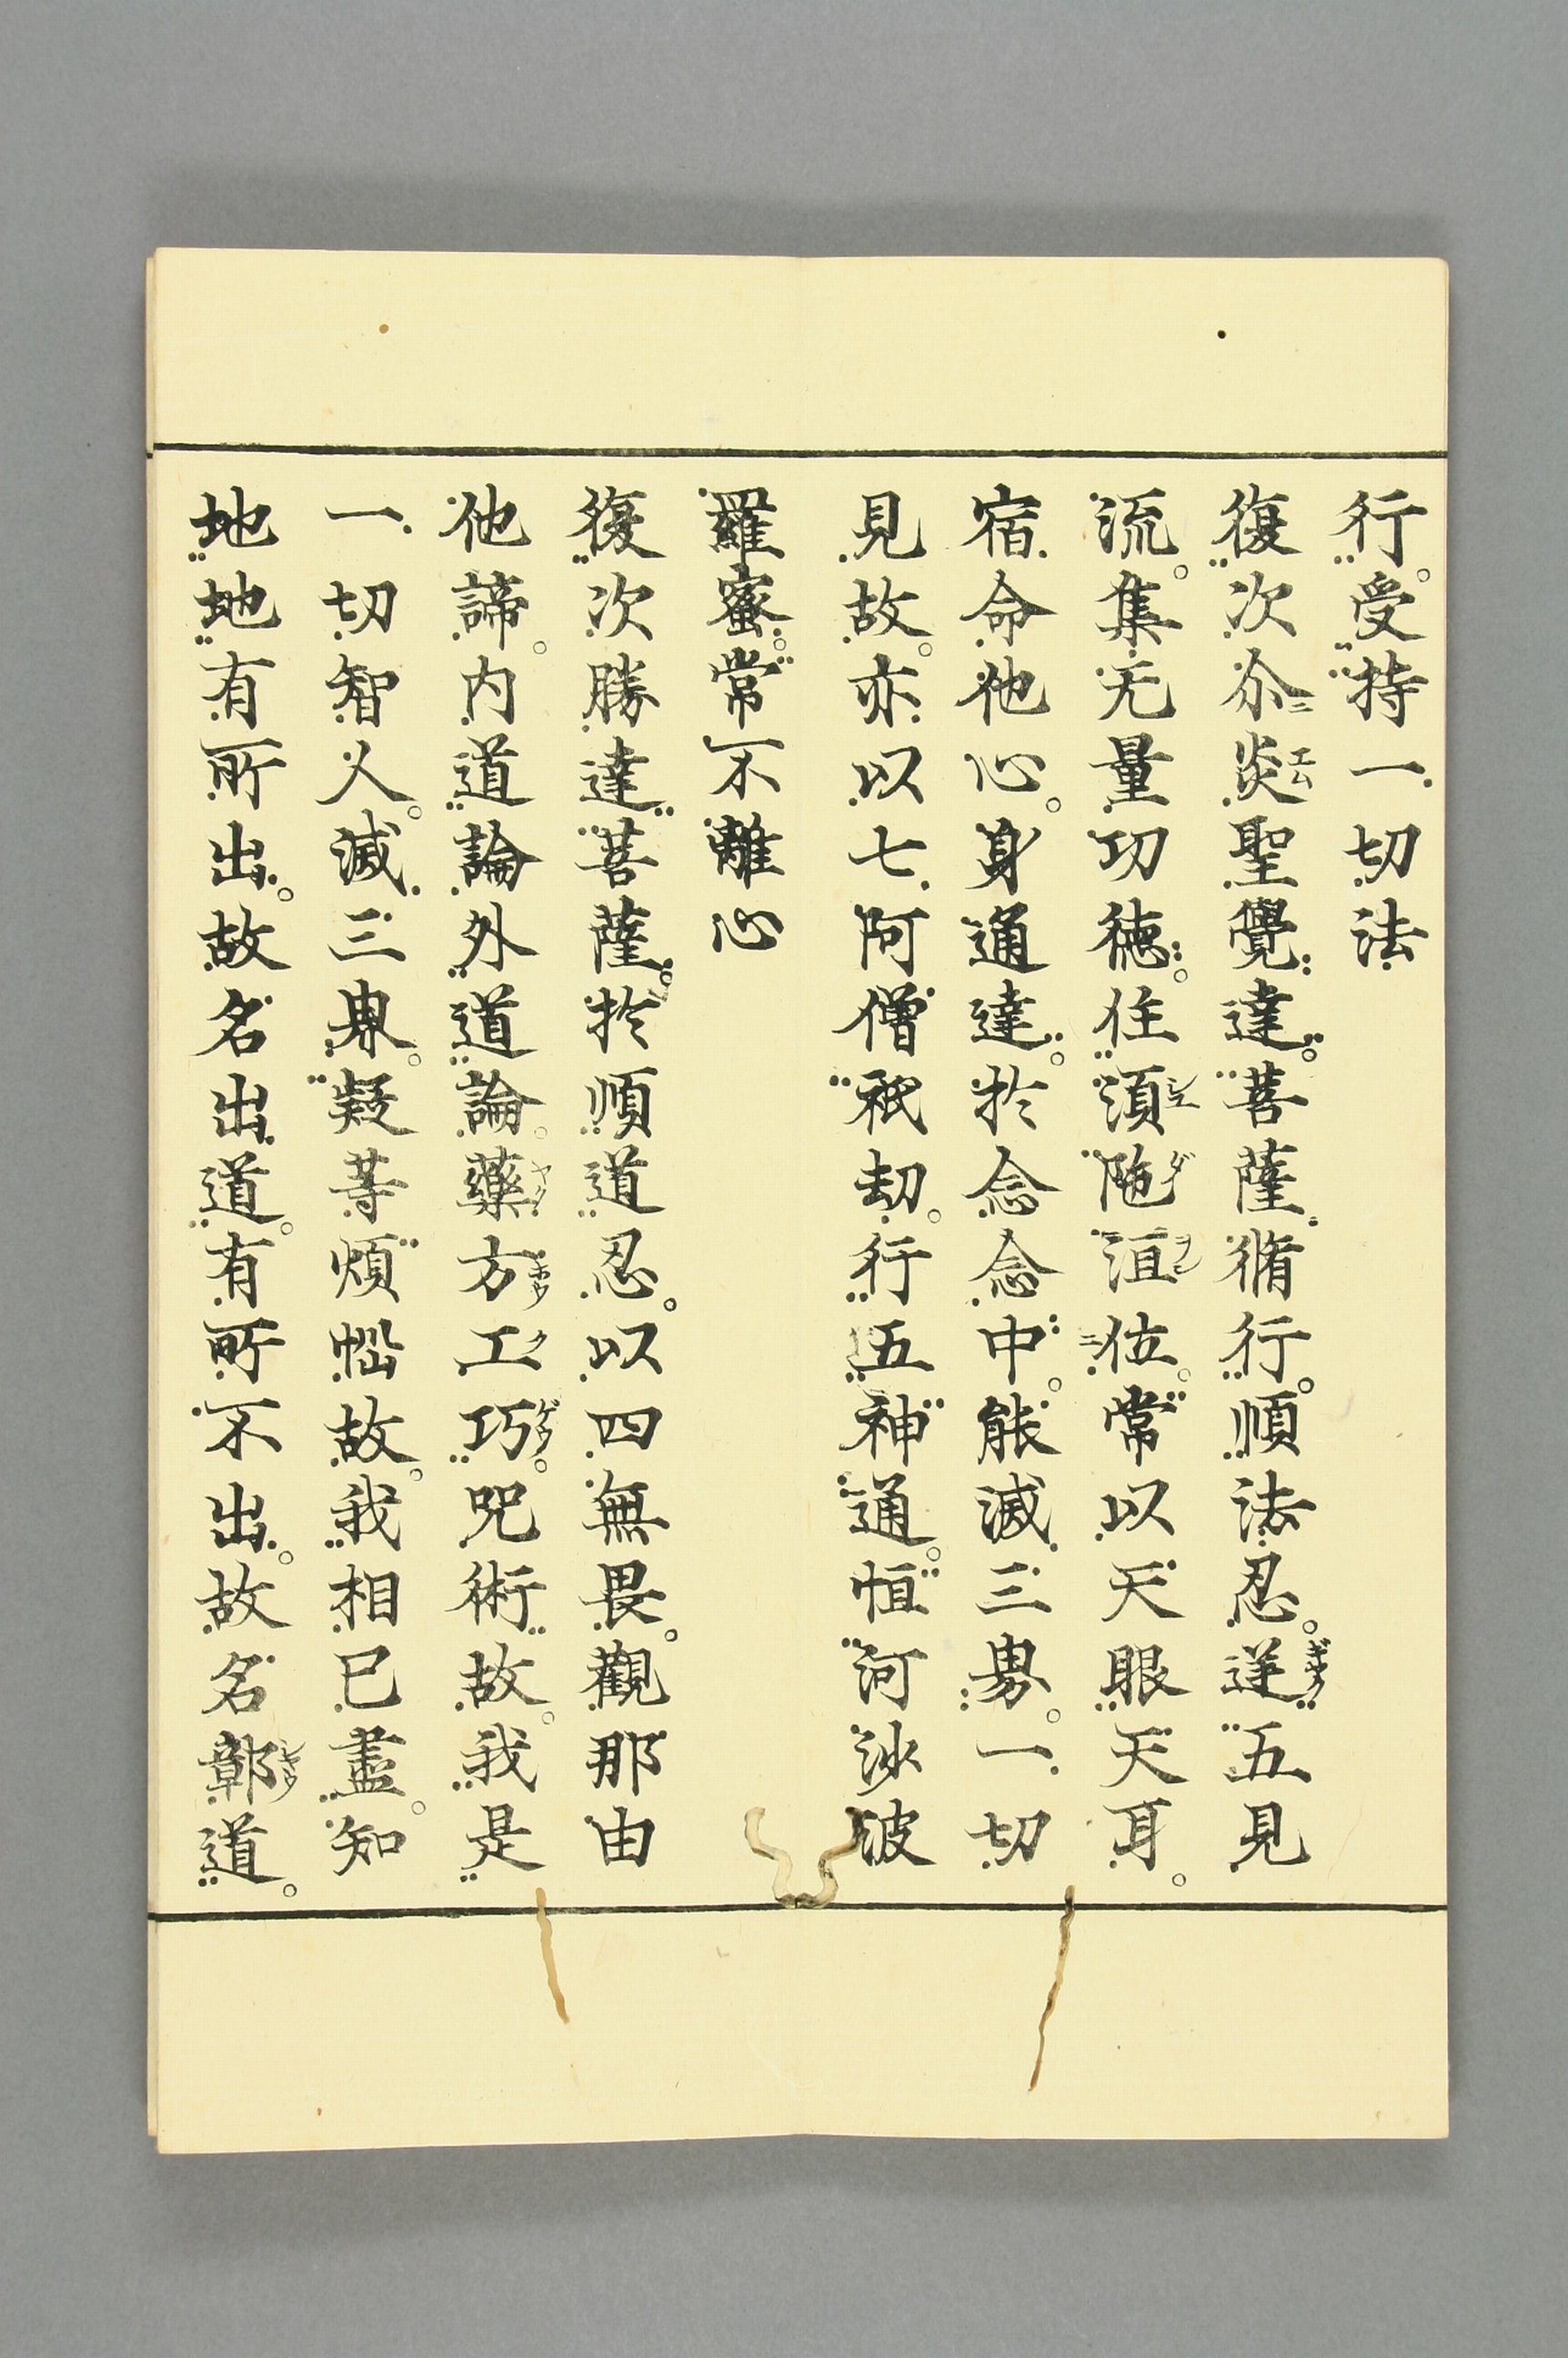 行。受持一切法
復次尒炎聖覺達。菩薩脩行。順法忍。逆五見
流。集无量功德。住須陁洹位。常以天眼天耳。
宿命他心。身通達。於念念中。能滅三界。一切
見故。亦以七阿僧祇劫。行五神通。恒河沙波
羅蜜。常不離心
復次勝達菩薩。於順道忍。以四無畏。觀那由
他諦。内道論外道論。藥方工巧。呪術故。我是
一切智人。滅三界。疑等煩惱故。我相已盡。知
地地有所出。故名出道。有所不出。故名鄣道。